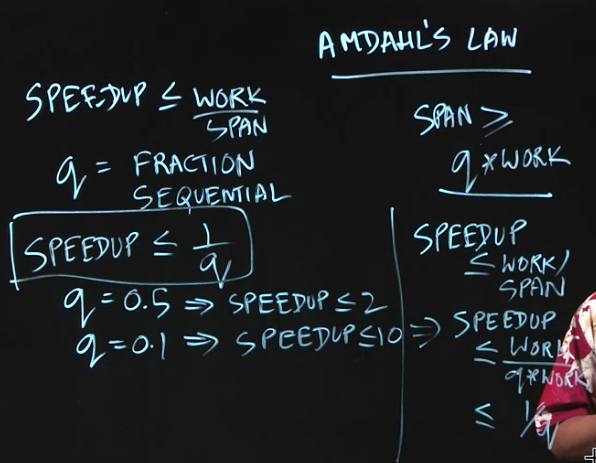 AMDAHL'S LAW
SPEEDUP ≤ WORK
SPAN
q = FRACTION
SEQUENTIAL
SPEEDUP ≤ 1
q
q = 0.5 ⇒ SPEEDUP ≤ 2
q = 0.1 ⇒ SPEEDUP ≤ 10
SPAN ≥
q * WORK
SPEEDUP
≤ WORK/
SPAN
⇒ SPEEDUP
≤ WORK
q*WORK
≤ 1/q